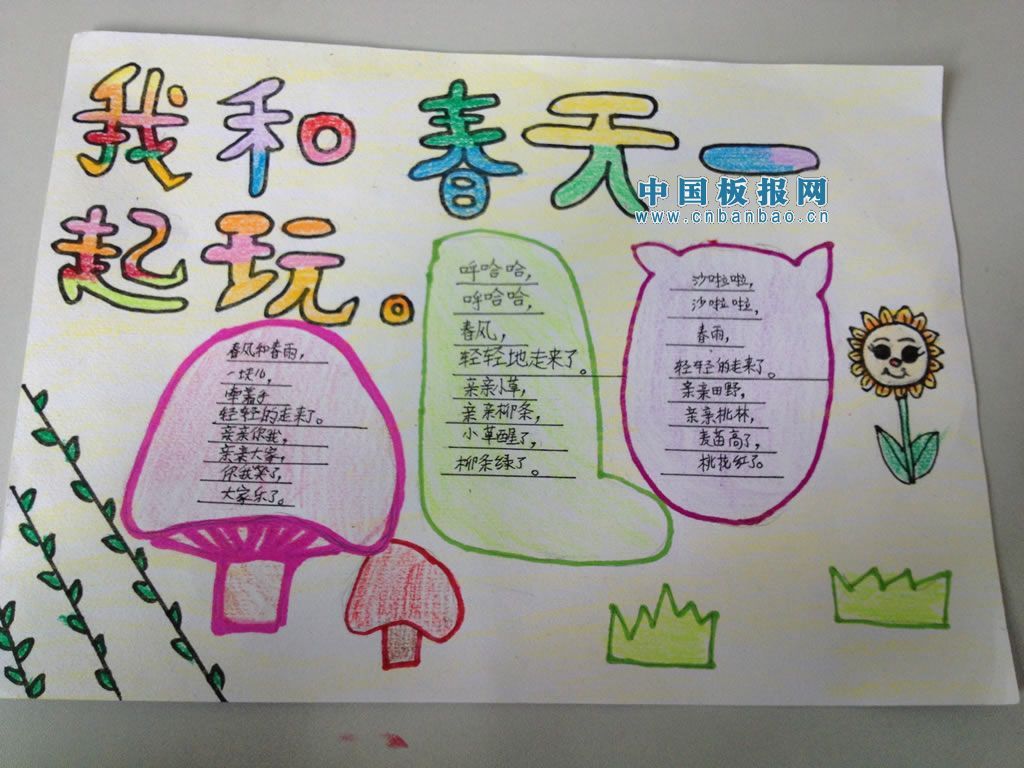 我和春天一
起玩。
中国板报网
www.cnbanbao.cn
春风和春雨，
一块儿，
牵着手
轻轻的走来了。
亲亲你我，
亲亲大家，
你我笑了，
大家乐了。
呼哈哈，
呼哈哈，
春风，
轻轻地走来了。
亲亲小草，
亲亲柳条，
小草醒了，
柳条绿了。
沙啦啦，
沙啦啦，
春雨，
轻轻的走来了。
亲亲田野，
亲亲桃林，
麦苗高了，
桃花红了。